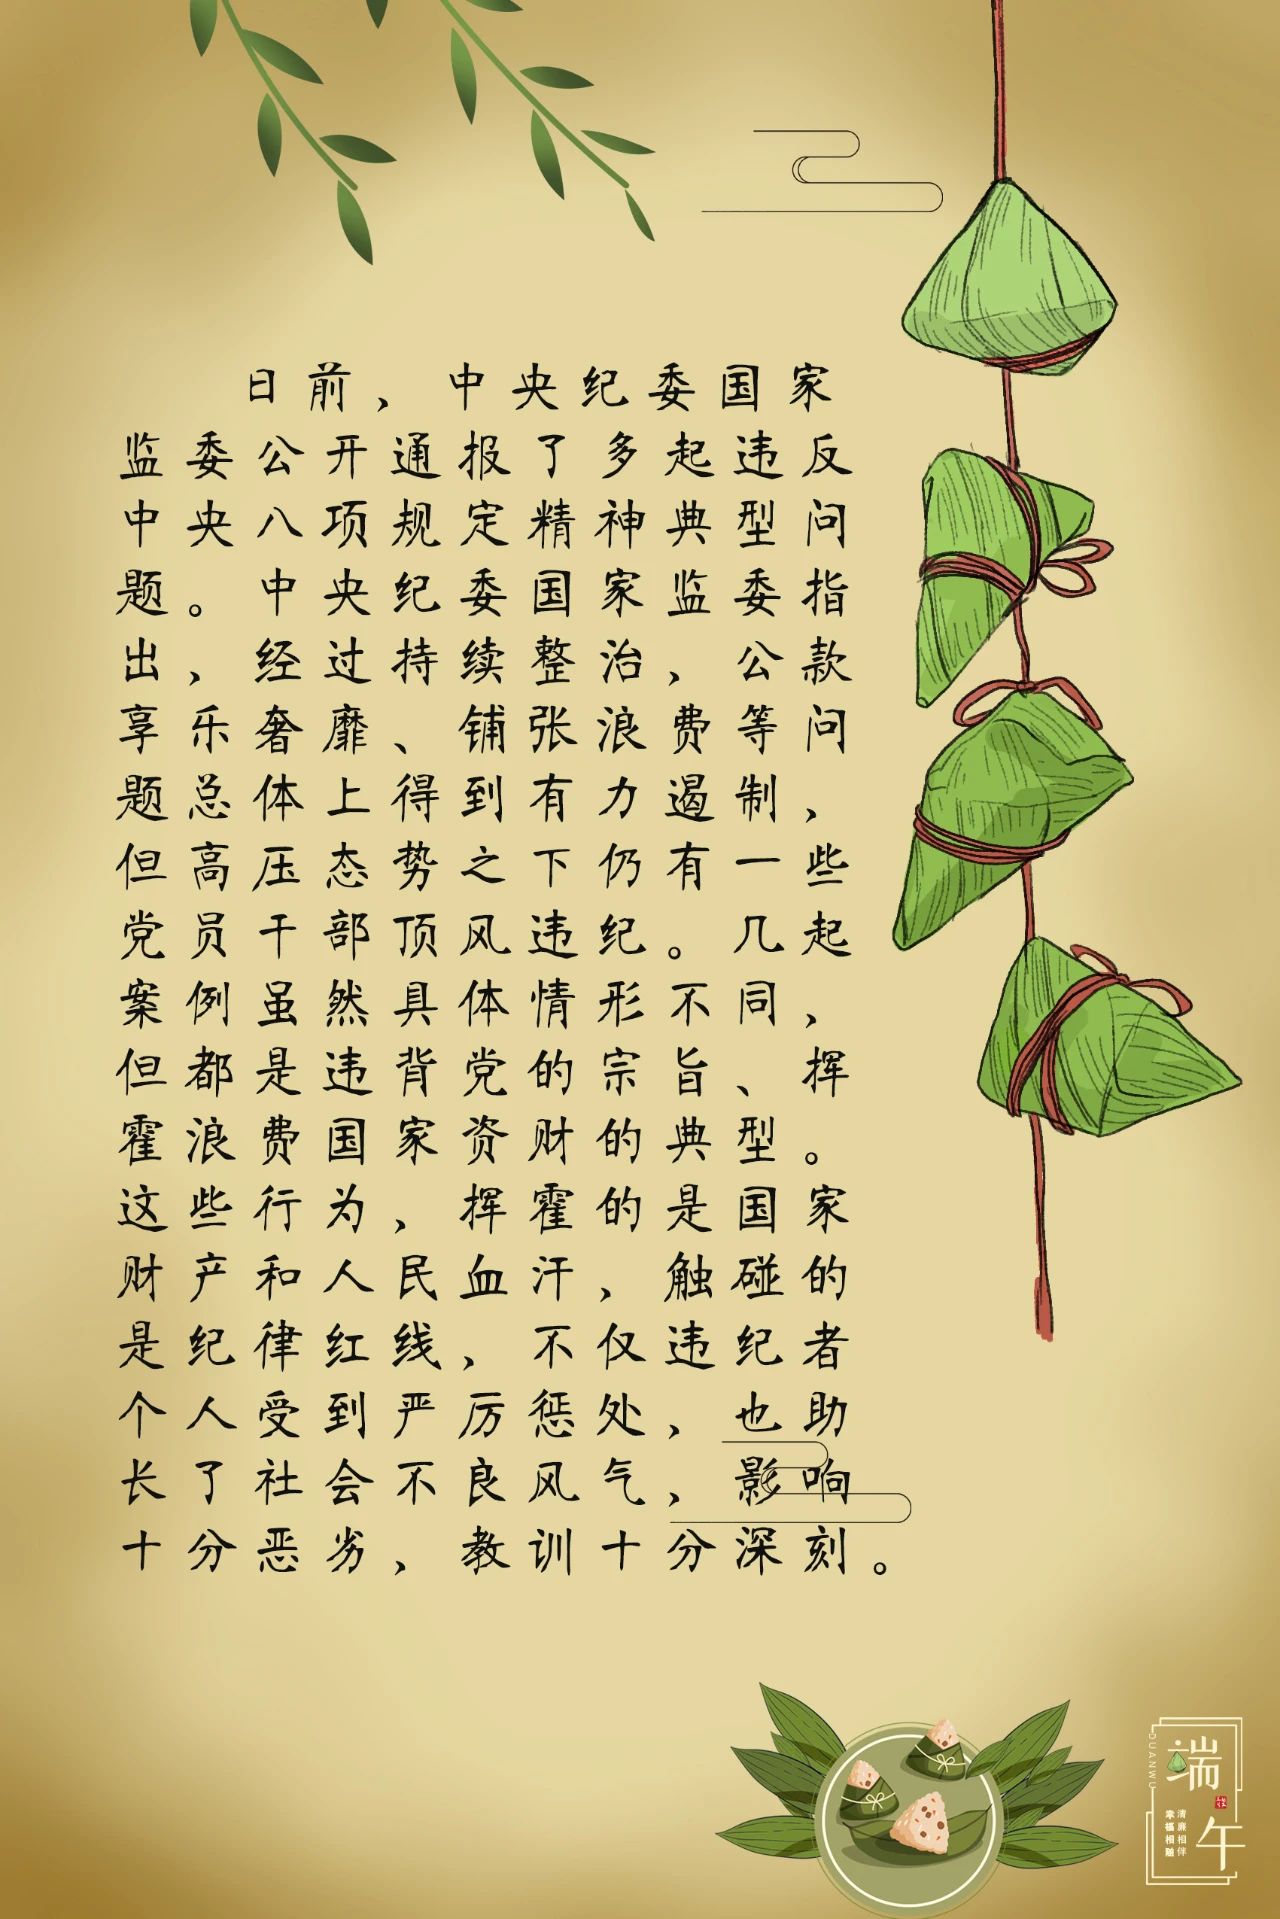 日前，中央纪委国家
监委公开通报了多起违反
中央八项规定精神典型问
题。中央纪委国家监委指
出，经过持续整治，公款
享乐奢靡、铺张浪费等问
题总体上得到有力遏制，
但高压态势之下仍有一些
党员干部顶风违纪。几起
案例虽然具体情形不同，
但都是违背党的宗旨、挥
霍浪费国家资财的典型。
这些行为，挥霍的是国家
财产和人民血汗，触碰的
是纪律红线，不仅违纪者
个人受到严厉惩处，也助
长了社会不良风气，影响
十分恶劣，教训十分深刻。
DUANWU
端午
清廉相伴
幸福相随